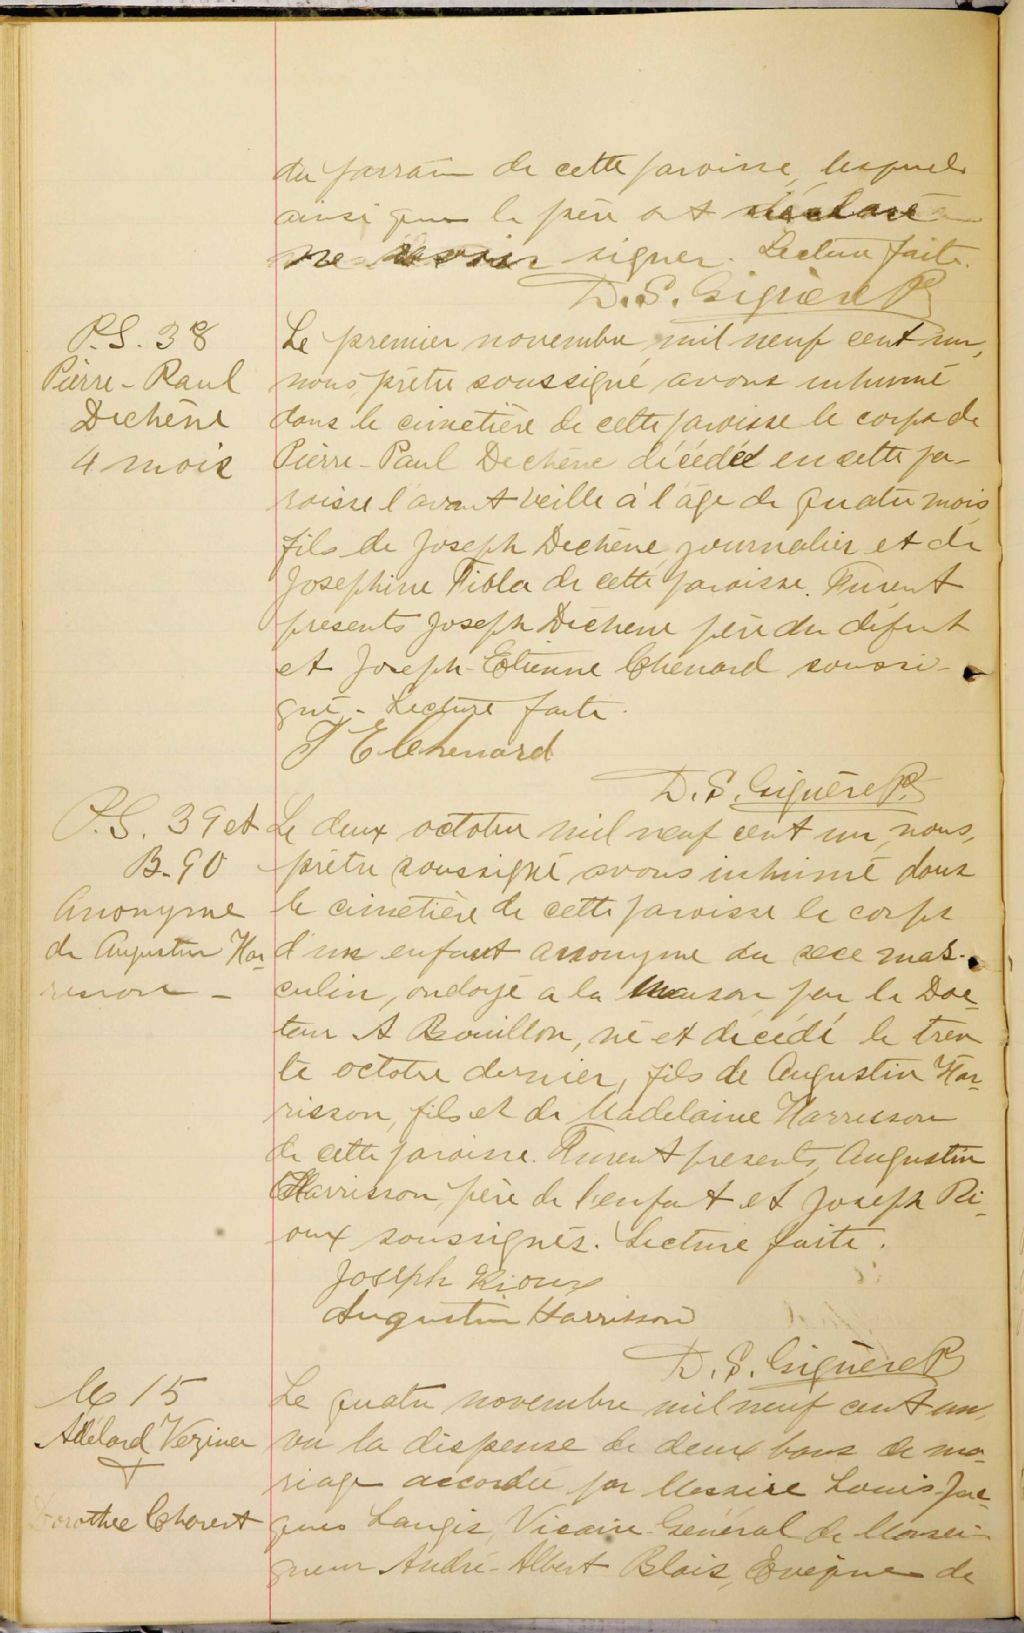 du parrain de cette paroisse, lesquels
ainsi que le père ont déclaré
ne savoir signer. Lecture faite.
D. S. Giguère Ptr
P.S. 38
Pierre-Paul
Dechêne
4 mois
Le premier novembre, mil neuf cent un,
nous, prêtre soussigné, avons inhumé
dans le cimetière de cette paroisse le corps de
Pierre-Paul Dechêne décédé en cette pa-
roisse l'avant veille à l'âge de quatre mois,
fils de Joseph Dechêne, journalier et de
Josephine Tibla de cette paroisse. Furent
présents Joseph Dechene père du défunt
et Joseph-Etienne Chenard soussi-
gné - Lecture faite.
J E Chenard
D. S. Giguère Ptr
P.S. 39 et
B-90
Anonyme
de Augustin Har-
risson -
Le deux octobre mil neuf cent un, nous,
prêtre soussigné avons inhumé dans
le cimetière de cette paroisse le corps
d'un enfant anonyme du sexe mas-
culin, ondoyé a la maison par le Doc-
teur A Bouillon, né et décédé le tren
te octobre dernier, fils de Augustin Har-
risson, fils et de Madelaine Harrisson
de cette paroisse. Furent presents, Augustin
Harrisson, père de l'enfant et Joseph Ri-
oux soussignés. Lecture faite.
Joseph Rioux
Augustin Harrisson
D. S. Giguère Ptr
M 15
Adélard Vézina
+
Dorothée Charest
Le quatre novembre mil neuf cent un,
vu la dispense de deux bans de ma-
riage accordée par Messire Louis-Jac-
ques Langis, Vicaire-Général de Monsei-
gneur André-Albert Blais, Evêque de